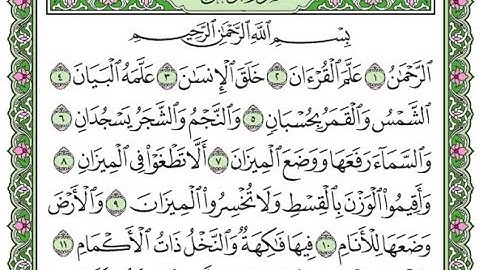 بِسْمِ ٱللَّهِ ٱلرَّحْمَٰنِ ٱلرَّحِيمِ
ٱلرَّحْمَٰنُ ١ عَلَّمَ ٱلْقُرْءَانَ ٢ خَلَقَ ٱلْإِنسَٰنَ ٣ عَلَّمَهُ ٱلْبَيَانَ ٤
ٱلشَّمْسُ وَٱلْقَمَرُ بِحُسْبَانٍ ٥ وَٱلنَّجْمُ وَٱلشَّجَرُ يَسْجُدَانِ ٦
وَٱلسَّمَآءَ رَفَعَهَا وَوَضَعَ ٱلْمِيزَانَ ٧ أَلَّا تَطْغَوْا۟ فِى ٱلْمِيزَانِ ٨
وَأَقِيمُوا۟ ٱلْوَزْنَ بِٱلْقِسْطِ وَلَا تُخْسِرُوا۟ ٱلْمِيزَانَ ٩ وَٱلْأَرْضَ
وَضَعَهَا لِلْأَنَامِ ١٠ فِيهَا فَٰكِهَةٌ وَٱلنَّخْلُ ذَاتُ ٱلْأَكْمَامِ ١١